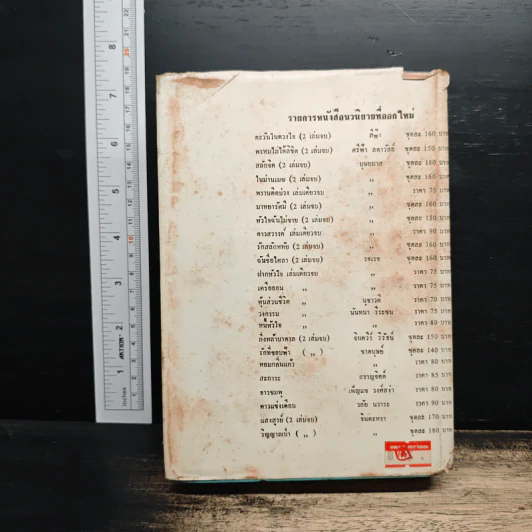 รายการหนังสือนวนิยายที่ออกใหม่
ตะวันในดวงใจ (2 เล่มจบ) สีฟ้า ชุดละ 160 บาท
พรหมไม่ได้ลิขิต (2 เล่มจบ) ศรีฟ้า ลดาวัลย์ ชุดละ 150 บาท
สลักจิต (2 เล่มจบ) บุษยมาส ชุดละ 180 บาท
ในม่านเมฆ (2 เล่มจบ) ,, ชุดละ 160 บาท
พรานติดบ่วง เล่มเดียวจบ ,, ราคา 75 บาท
มาทยารัศมี (2 เล่มจบ) ,, ชุดละ 160 บาท
หัวใจฉันไม่ขาย (2 เล่มจบ) ,, ชุดละ 150 บาท
ดาวสวรรค์ เล่มเดียวจบ ,, ราคา 90 บาท
รักสลักหทัย (2 เล่มจบ) ,, ชุดละ 160 บาท
ฉันชื่อไศลา (2 เล่มจบ) ชุดละ 160 บาท
ปากหัวใจ เล่มเดียวจบ ,, ราคา 75 บาท
เครือออน ,, ,, ราคา 75 บาท
หุ้นส่วนชีวิต ,, ราคา 70 บาท
วงกรรม ,, นันทนา วีระชน ราคา 75 บาท
หนี้หัวใจ ,, ,, ราคา 80 บาท
กิ่งหล้าบาดาล (2 เล่มจบ) จินตวีร์ วิวัธน์ ชุดละ 150 บาท
รักที่ขอบฟ้า ( ,, ) ชุดละ 140 บาท
หยมกลิ่นแก้ว ,, ราคา 80 บาท
สะการะ ราคา 85 บาท
ธารชมพู เพ็ญแข วงศ์สง่า ราคา 80 บาท
ดาวแข่งเดือน วลัย นวาระ ราคา 90 บาท
แสงสูรย์ (2 เล่มจบ) จินตะหรา ชุดละ 170 บาท
วิญญาณป่า ( ,, ) ,, ชุดละ 180 บาท
8
7
6
5
4
3
2
1
inches
20
10